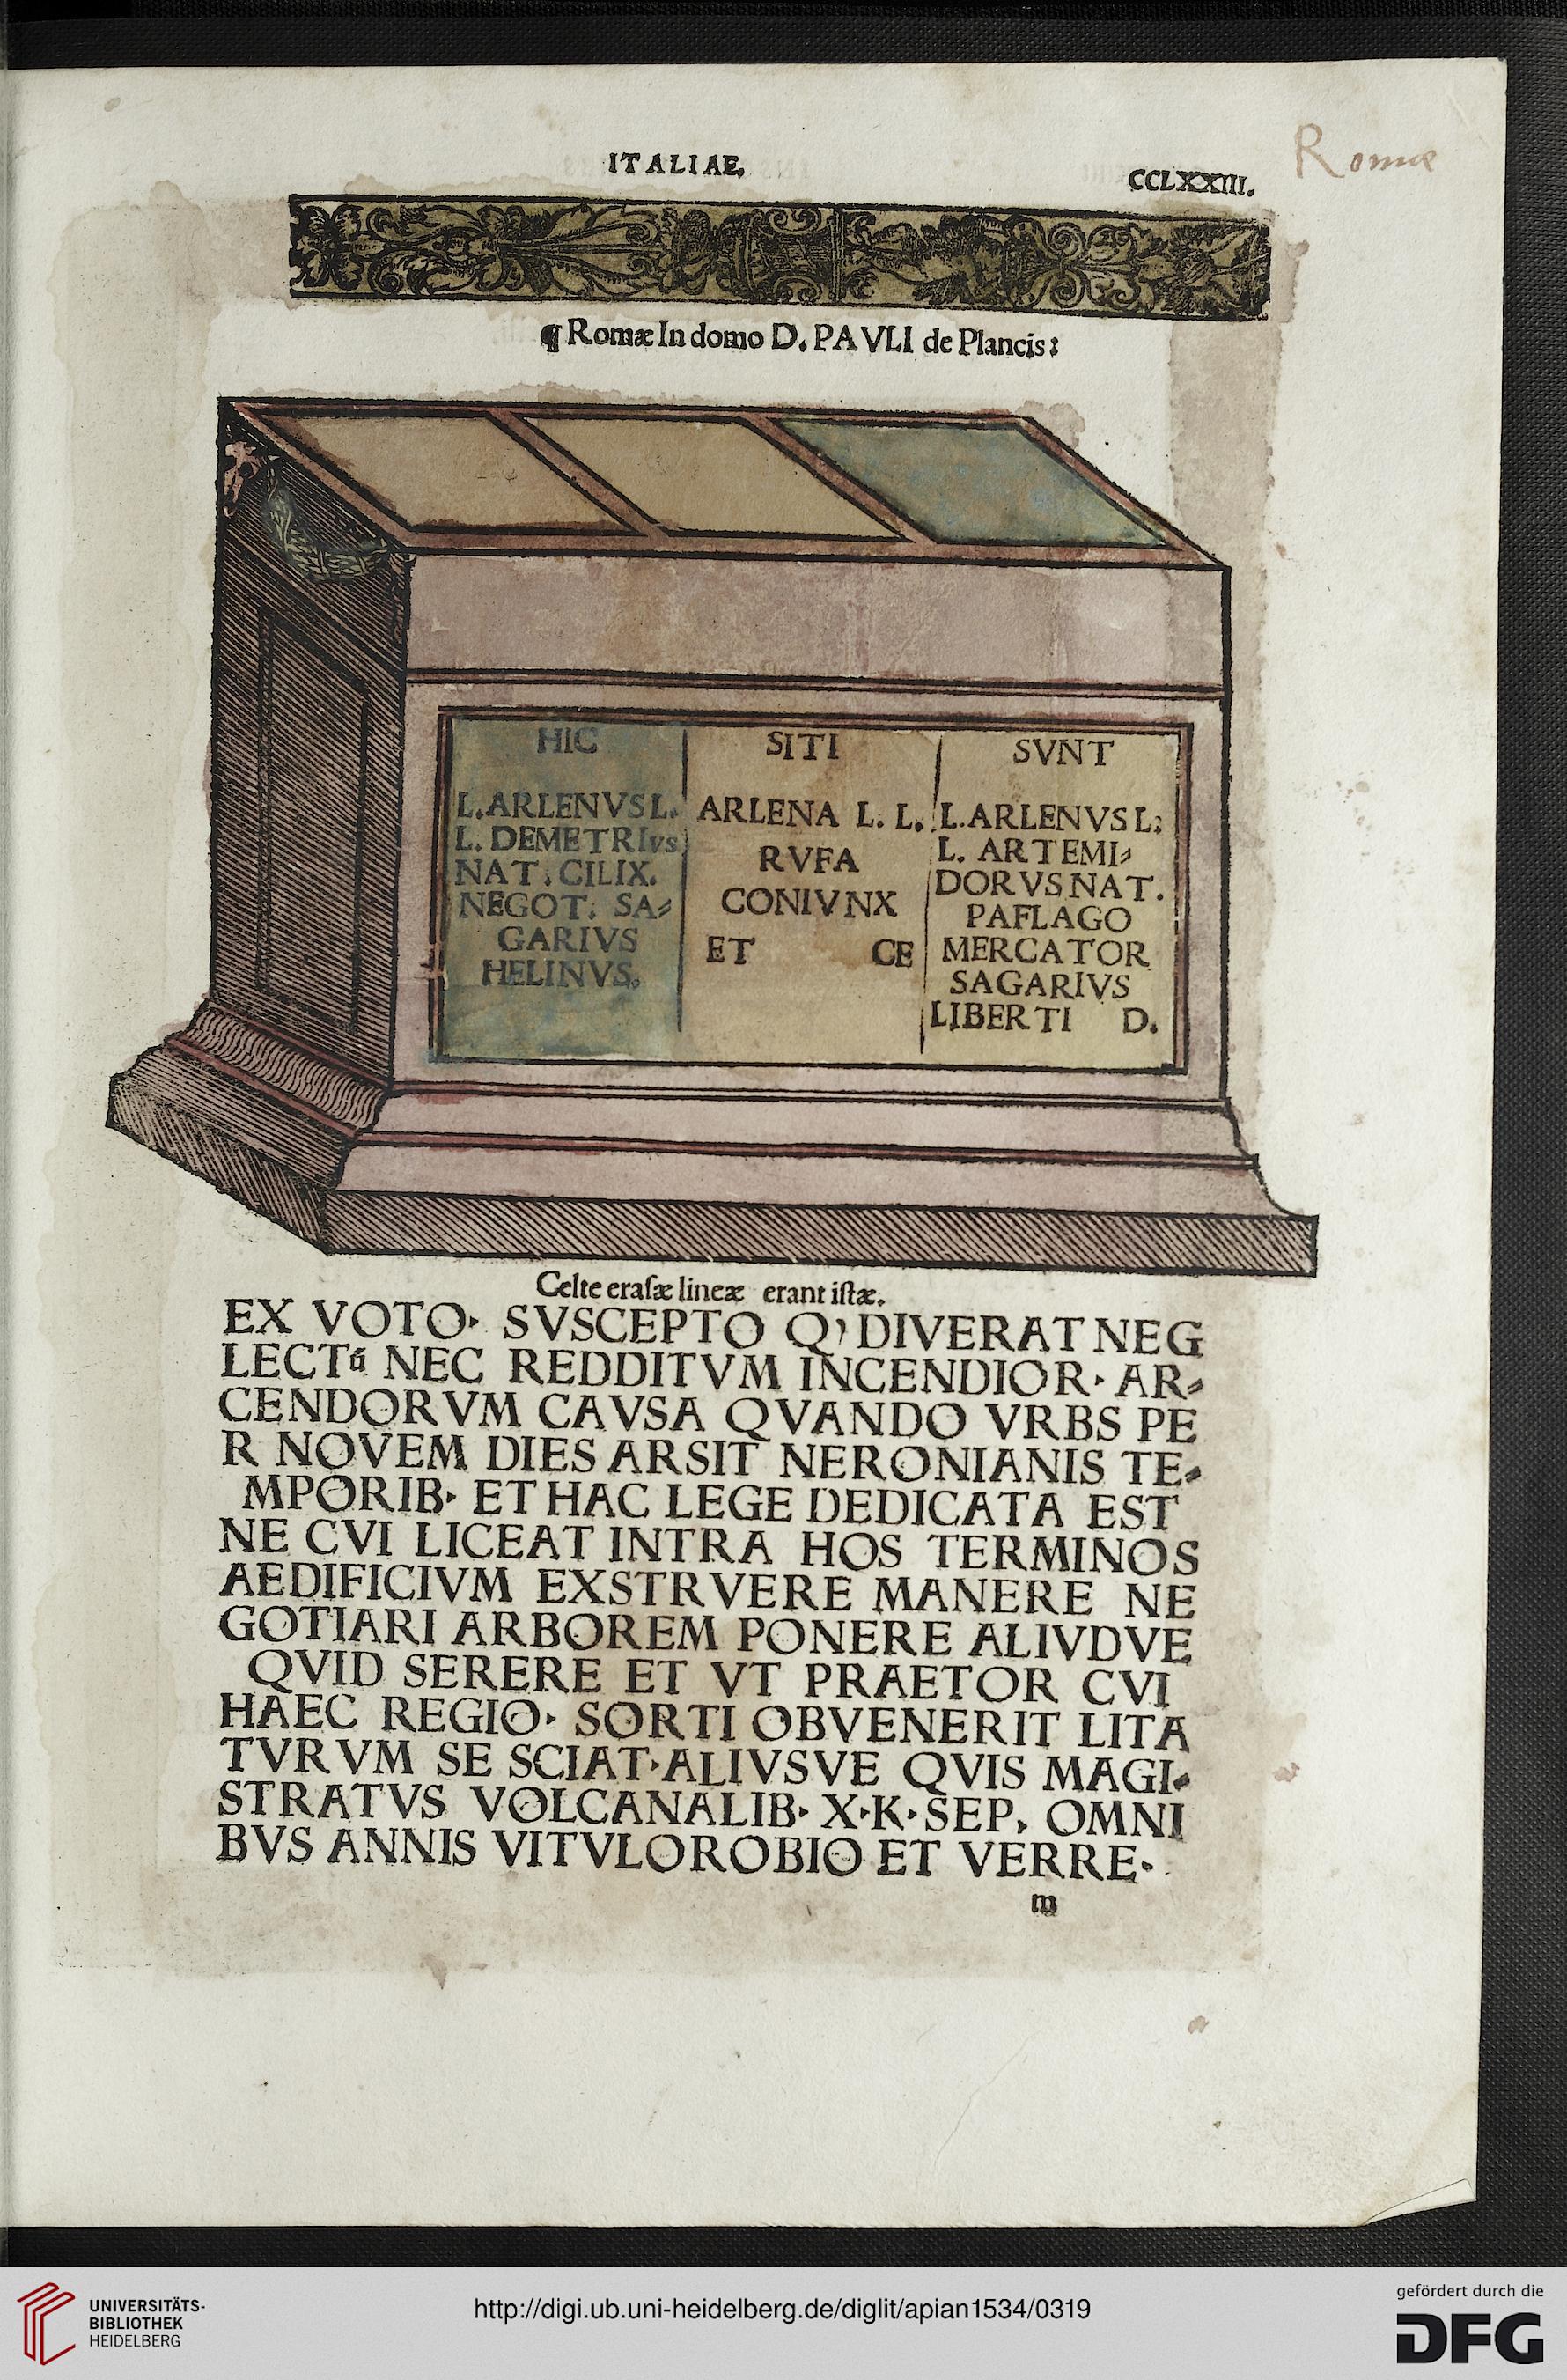 ITALIAE,
CCLXXIII.
Romæ
¶ Romæ In domo D. PAVLI de Plancis:
HIC
L. ARLENVS L.
L. DEMETRIvs
NAT. CILIX.
NEGOT. SA⸗
GARIVS
HELINVS.
SITI
ARLENA L. L.
RVFA
CONIVNX
ET CE
SVNT
L. ARLENVS L:
L. ARTEMI⸗
DORVS NAT.
PAFLAGO
MERCATOR
SAGARIVS
LIBERTI D.
Celte eraſæ lineæ erant iſtæ.
EX VOTO· SVSCEPTO Q' DIVERAT NEG
LECTũ NEC REDDITVM INCENDIOR· AR⸗
CENDORVM CAVSA QVANDO VRBS PE
R NOVEM DIES ARSIT NERONIANIS TE⸗
MPORIB· ET HAC LEGE DEDICATA EST
NE CVI LICEAT INTRA HOS TERMINOS
AEDIFICIVM EXSTRVERE MANERE NE
GOTIARI ARBOREM PONERE ALIVDVE
QVID SERERE ET VT PRAETOR CVI
HAEC REGIO· SORTI OBVENERIT LITA
TVRVM SE SCIAT·ALIVSVE QVIS MAGI⸗
STRATVS VOLCANALIB· X·K·SEP, OMNI
BVS ANNIS VITVLOROBIO ET VERRE·
m
UNIVERSITÄTS-
BIBLIOTHEK
HEIDELBERG
http://digi.ub.uni-heidelberg.de/diglit/apian1534/0319
gefördert durch die
DFG